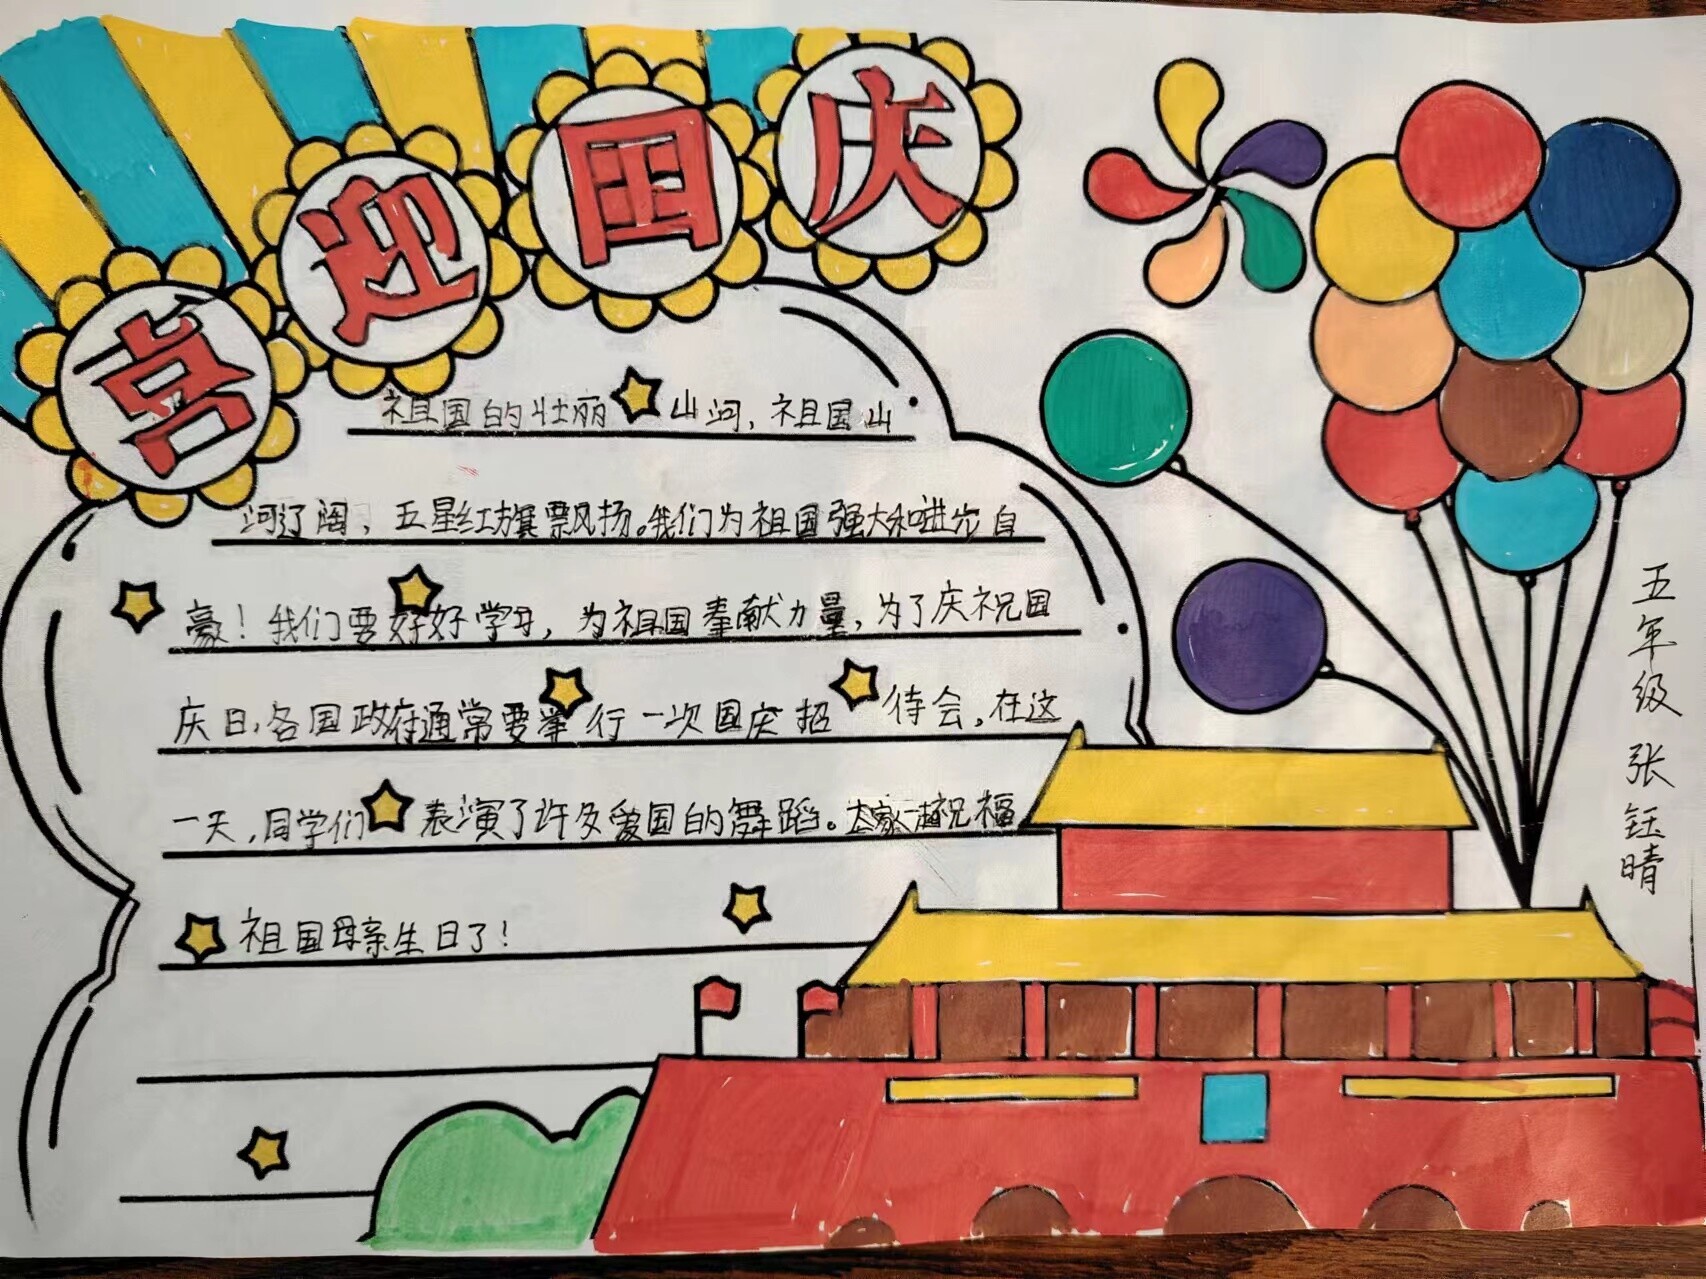 喜迎国庆
祖国的壮丽山河，祖国山
河辽阔，五星红旗飘扬。我们为祖国强大和进步自
豪！我们要好好学习，为祖国奉献力量，为了庆祝国
庆日，各国政府通常要举行一次国庆招待会，在这
一天，同学们表演了许多爱国的舞蹈。大家一起祝福
祖国母亲生日了！
五年级 张钰晴